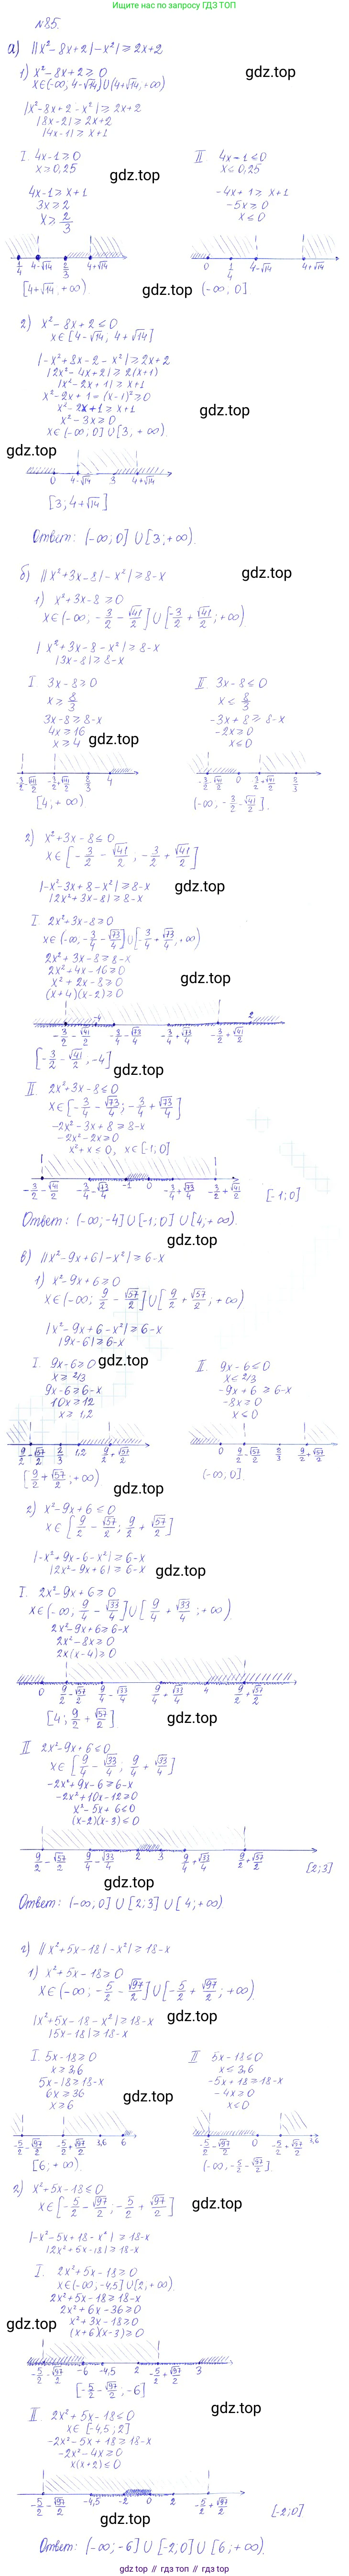 Спасибо, что используете gdz.top
№85.
а) ||x²-8x+2|-x²| ≥ 2x+2
1) x²-8x+2 ≥ 0
x∈(-∞, 4-√14)∪(4+√14, +∞)
gdz.top
|x²-8x+2-x²| ≥ 2x+2
|8x-2| ≥ 2x+2
|4x-1| ≥ x+1
I. 4x-1 ≥ 0
x ≥ 0,25
4x-1 ≥ x+1
3x ≥ 2
x ≥ 2/3
II 4x-1 ≤ 0
x ≤ 0,25
-4x+1 ≥ x+1
-5x ≥ 0
x ≤ 0
gdz.top
1/4 4-√14 2/3 4+√14
0 1/4 4-√14 4+√14
[4+√14, +∞)
gdz.top
(-∞, 0]
2) x²-8x+2 ≤ 0
x∈[4-√14, 4+√14]
|-x²+8x-2-x²| ≥ 2x+2
|2x²-4x+2| ≥ 2(x+1)
|x²-2x+1| ≥ x+1
x²-2x+1=(x-1)² ≥ 0
x²-2x+1 ≥ x+1
x²-3x ≥ 0
x∈(-∞; 0]∪[3, +∞).
gdz.top
gdz.top
0 4-√14 3 4+√14
[3; 4+√14]
Ответ: (-∞; 0]∪[3; +∞).
б) ||x²+3x-8|-x²| ≥ 8-x
gdz.top
1) x²+3x-8 ≥ 0
x∈(-∞, -3/2-√41/2]∪[-3/2+√41/2; +∞)
|x²+3x-8-x²| ≥ 8-x
|3x-8| ≥ 8-x
I 3x-8 ≥ 0
x ≥ 8/3
3x-8 ≥ 8-x
4x ≥ 16
x ≥ 4
II. 3x-8 ≤ 0
x ≤ 8/3
-3x+8 ≥ 8-x
-2x ≥ 0
x ≤ 0
gdz.top
-3/2-√41/2 -3/2+√41/2 8/3 4
-3/2-√41/2 0 -3/2+√41/2 8/3
[4; +∞)
(-∞, -3/2-√41/2].
2) x²+3x-8 ≤ 0
x∈[-3/2-√41/2, -3/2+√41/2]
|-x²-3x+8-x²| ≥ 8-x
|2x²+3x-8| ≥ 8-x
gdz.top
I 2x²+3x-8 ≥ 0
x∈(-∞, -3/4-√73/4]∪[-3/4+√73/4, +∞)
2x²+3x-8 ≥ 8-x
2x²+4x-16 ≥ 0
x²+2x-8 ≥ 0
(x+4)(x-2) ≥ 0
gdz.top
-3/2-√41/2 -4 -3/4-√73/4 -3/4+√73/4 -3/2+√41/2 2
[-3/2-√41/2, -4]
gdz.top
II 2x²+3x-8 ≤ 0
x∈[-3/4-√73/4; -3/4+√73/4]
-2x²-3x+8 ≥ 8-x
-2x²-2x ≥ 0
x²+x ≤ 0, x∈[-1, 0]
-3/2-√41/2 -3/4-√73/4 -1 0 -3/4+√73/4 -3/2+√41/2
[-1; 0]
Ответ: (-∞; -4]∪[-1; 0]∪[4; +∞).
gdz.top
в) ||x²-9x+6|-x²| ≥ 6-x
1) x²-9x+6 ≥ 0
x∈(-∞; 9/2-√57/2]∪[9/2+√57/2; +∞)
|x²-9x+6-x²| ≥ 6-x
|9x-6| ≥ 6-x
I. 9x-6 ≥ 0
x ≥ 2/3
9x-6 ≥ 6-x
10x ≥ 12
x ≥ 1,2
gdz.top
II. 9x-6 ≤ 0
x ≤ 2/3
-9x+6 ≥ 6-x
-8x ≥ 0
x ≤ 0
9/2-√57/2 2/3 1,2 9/2+√57/2
0 9/2-√57/2 2/3 9/2+√57/2
[9/2+√57/2; +∞)
(-∞, 0]
gdz.top
2) x²-9x+6 ≤ 0
x∈[9/2-√57/2; 9/2+√57/2]
|-x²+9x-6-x²| ≥ 6-x
|2x²-9x+6| ≥ 6-x
gdz.top
I 2x²-9x+6 ≥ 0
x∈(-∞; 9/4-√33/4]∪[9/4+√33/4; +∞)
2x²-9x+6 ≥ 6-x
2x²-8x ≥ 0
2x(x-4) ≥ 0
0 9/2-√57/2 9/4-√33/4 9/4+√33/4 4 9/2+√57/2
[4; 9/2+√57/2]
gdz.top
II 2x²-9x+6 ≤ 0
x∈[9/4-√33/4; 9/4+√33/4]
-2x²+9x-6 ≥ 6-x
-2x²+10x-12 ≥ 0
x²-5x+6 ≤ 0
(x-2)(x-3) ≤ 0
9/2-√57/2 9/4-√33/4 2 3 9/4+√33/4 9/2+√57/2
[2; 3]
gdz.top
Ответ: (-∞, 0]∪[2; 3]∪[4; +∞)
г) ||x²+5x-18|-x²| ≥ 18-x
1) x²+5x-18 ≥ 0
x∈(-∞; -5/2-√97/2]∪[-5/2+√97/2; +∞).
|x²+5x-18-x²| ≥ 18-x
|5x-18| ≥ 18-x
gdz.top
I. 5x-18 ≥ 0
x ≥ 3,6
5x-18 ≥ 18-x
6x ≥ 36
x ≥ 6
II 5x-18 ≤ 0
x ≤ 3,6
-5x+18 ≥ 18-x
-4x ≥ 0
x<0
gdz.top
-5/2-√97/2 -5/2+√97/2 3,6 6
-5/2-√97/2 0 -5/2+√97/2 3,6
[6; +∞).
(-∞, -5/2-√97/2].
2) x²+5x-18 ≤ 0
x∈[-5/2-√97/2; -5/2+√97/2]
gdz.top
|-x²-5x+18-x²| ≥ 18-x
|2x²+5x-18| ≥ 18-x
I. 2x²+5x-18 ≥ 0
x∈(-∞, -4,5]∪[2, +∞).
2x²+5x-18 ≥ 18-x
2x²+6x-36 ≥ 0
x²+3x-18 ≥ 0
(x+6)(x-3) ≥ 0
gdz.top
-5/2-√97/2 -6 -4,5 2 -5/2+√97/2 3
[-5/2-√97/2, -6]
gdz.top
II 2x²+5x-18 ≤ 0
x∈[-4,5; 2]
-2x²-5x+18 ≥ 18-x
-2x²-4x ≥ 0
x(x+2) ≤ 0
-5/2-√97/2 -4,5 -2 0 2 -5/2+√97/2
[-2; 0]
gdz.top
Ответ: (-∞; -6]∪[-2, 0]∪[6; +∞).
gdz.top // гдз.топ // гдз.top